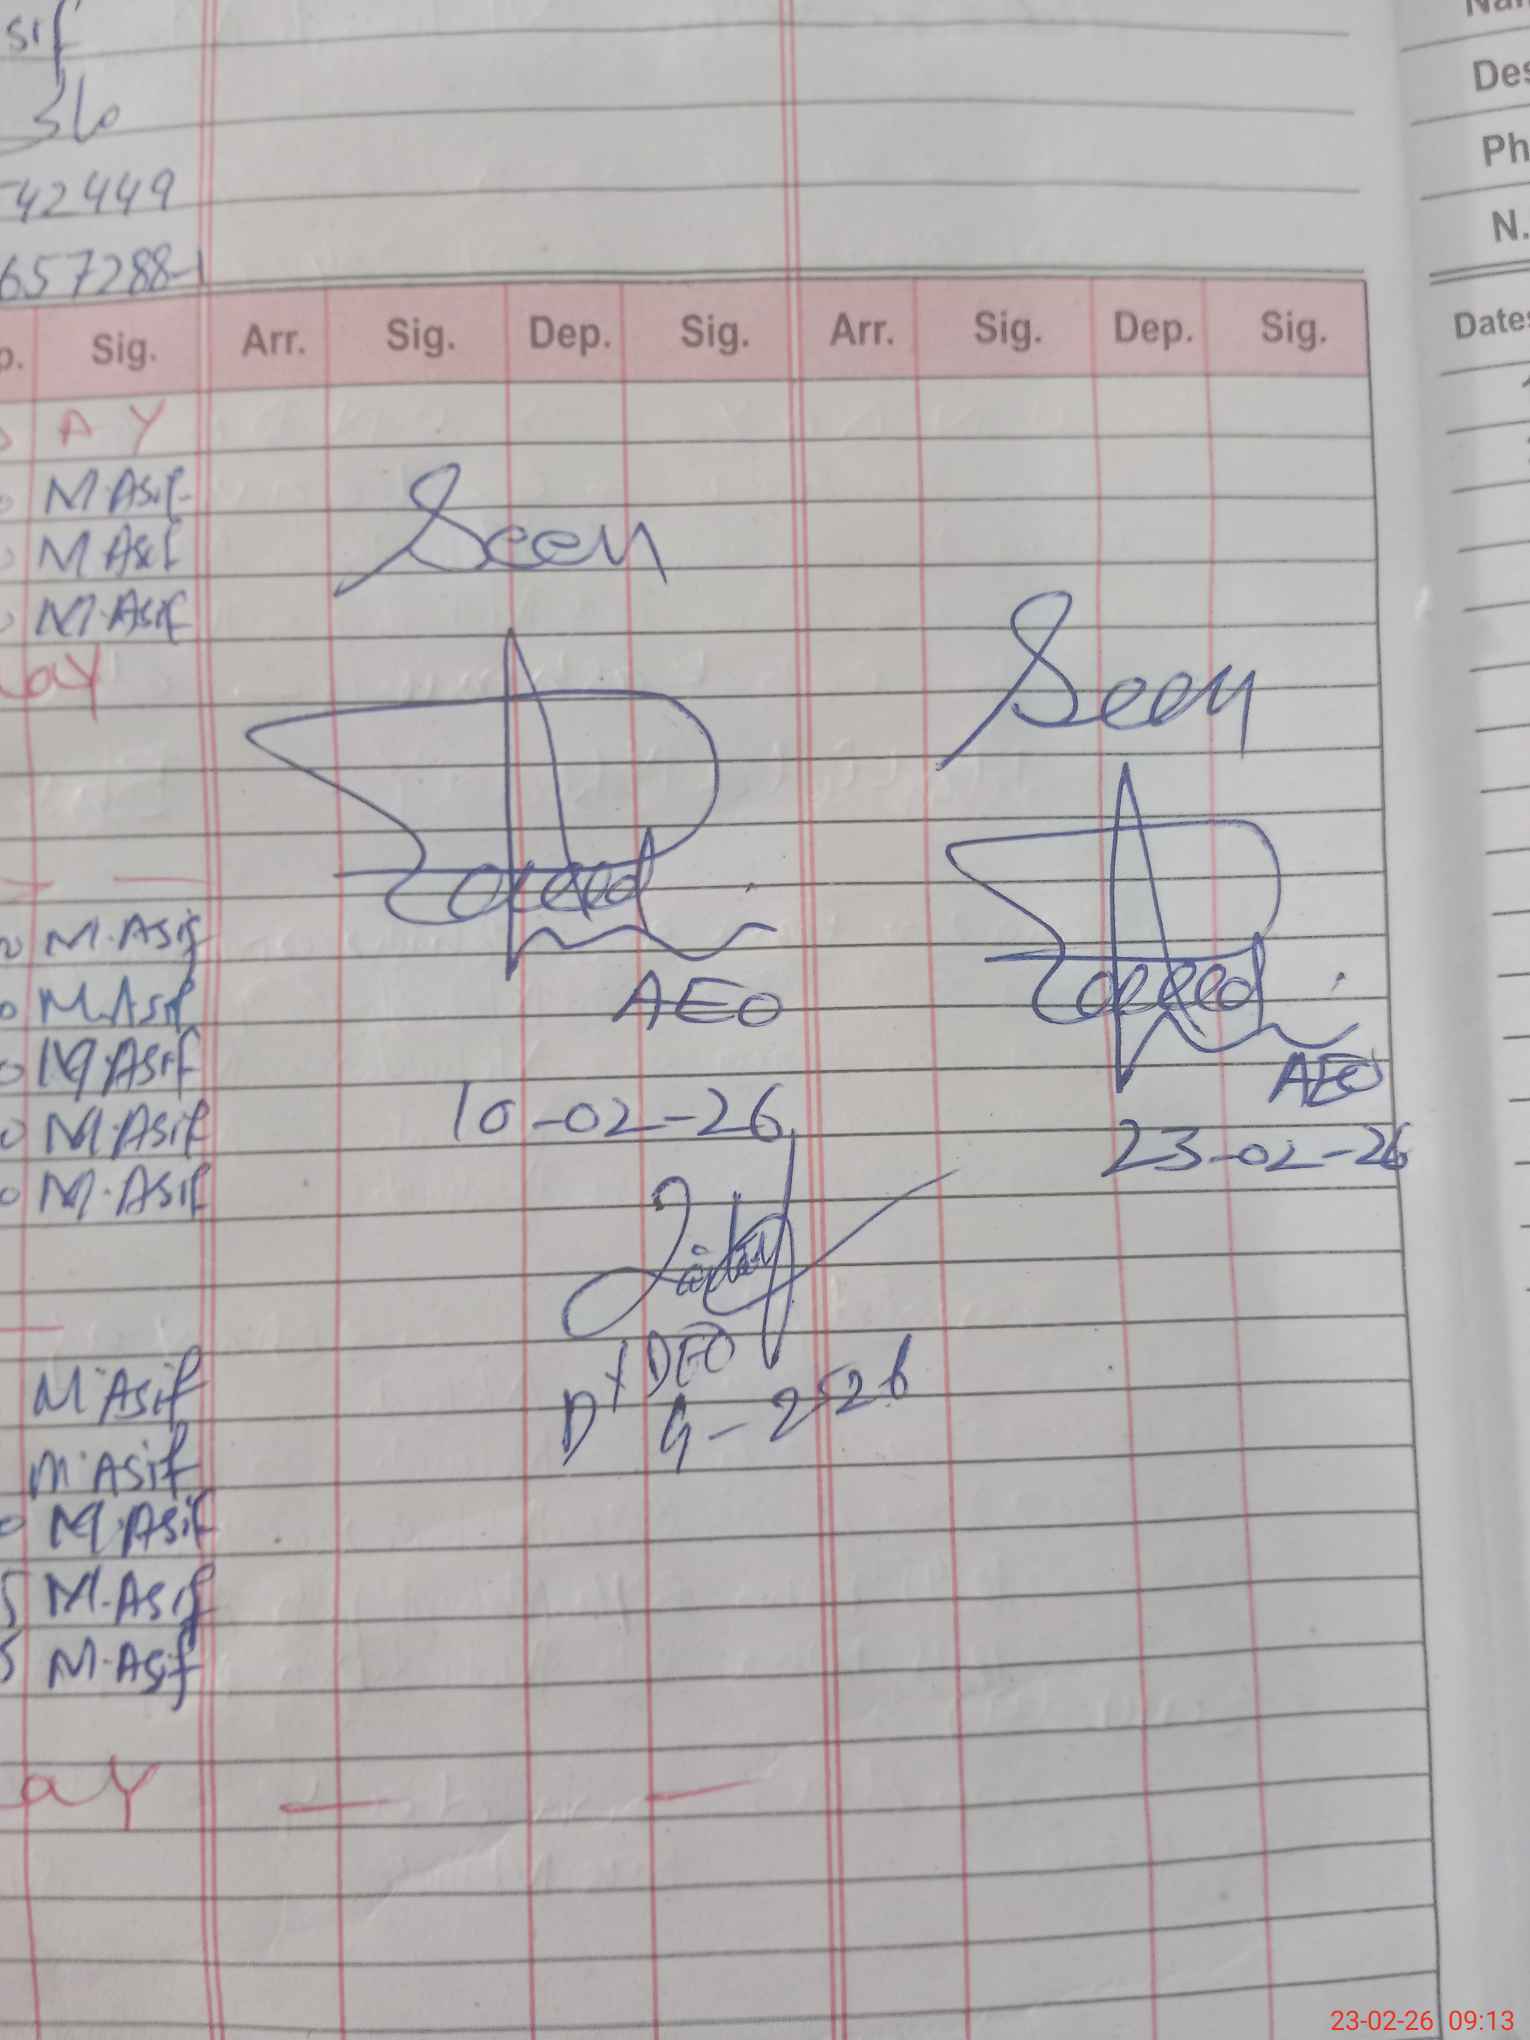 sif
36
42449
657288-1
Nam
Des
Ph
N.
p. Sig. Arr. Sig. Dep. Sig. Arr. Sig. Dep. Sig. Dates
A Y
M.Asif
M Asif
M.Asif
ay
Seen
Seen
M.Asif
M.Asif
M.Asif
M.Asif
M.Asif
AEO
10-02-26
AEO
23-02-26
Dy DEO
M.Asif
M.Asif
M.Asif
M.Asif
M.Asif
ay
23-02-26 09:13